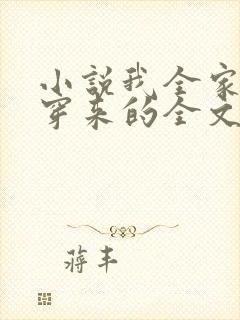 小説我全家
穿来的全文
蒋丰